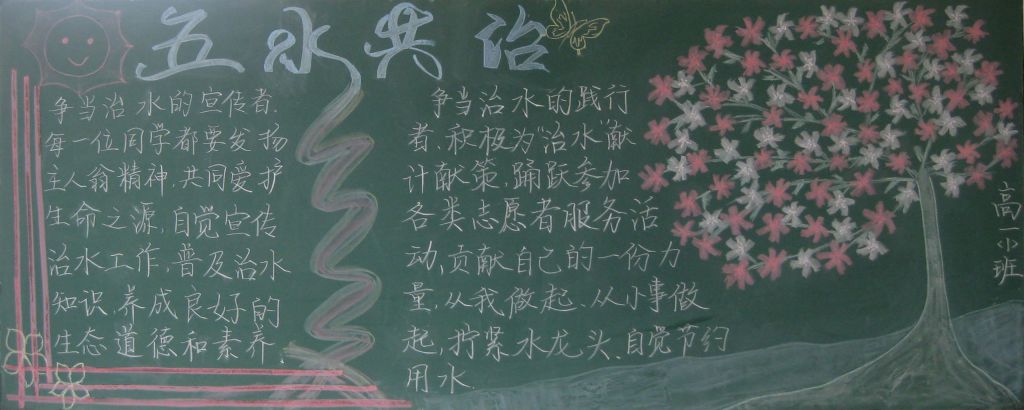 五水共治
争当治水的宣传者.
每一位同学都要发扬
主人翁精神,共同爱护
生命之源,自觉宣传
治水工作,普及治水
知识、养成良好的
生态道德和素养.
争当治水的践行
者、积极为“治水”献
计献策,踊跃参加
各类志愿者服务活
动,贡献自己的一份力
量,从我做起、从小事做
起,拧紧水龙头、自觉节约
用水.
高一(1)班